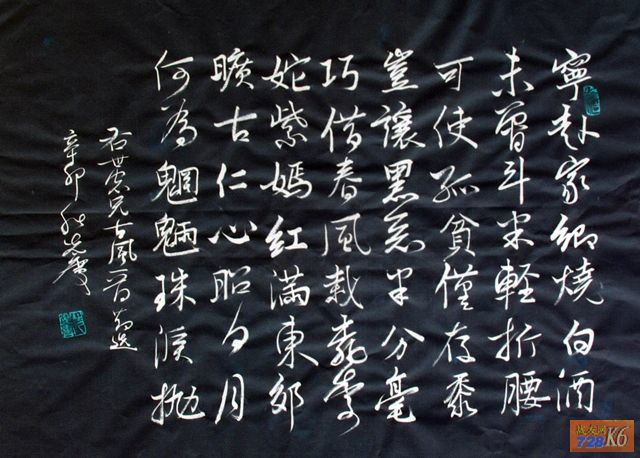 寧赴家鄉燒白酒
未曾斗米軽折腰
可使孤貧僅存黍
豈讓黑惡半分毫
巧借春風栽桃李
姹紫嫣紅滿東郊
曠古仁心昭日月
何為魍魎珠淚拋
右世兄古風一首
辛卯
战友网
728K6